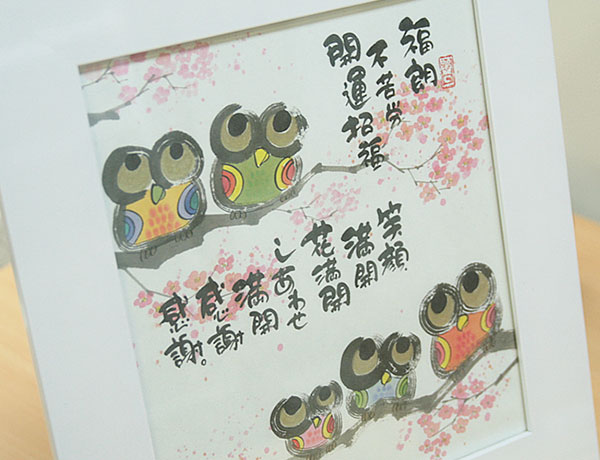 福朗
不苦労
開運招福
笑顔
満開
花満開
しあわせ
満開
感謝
感謝。